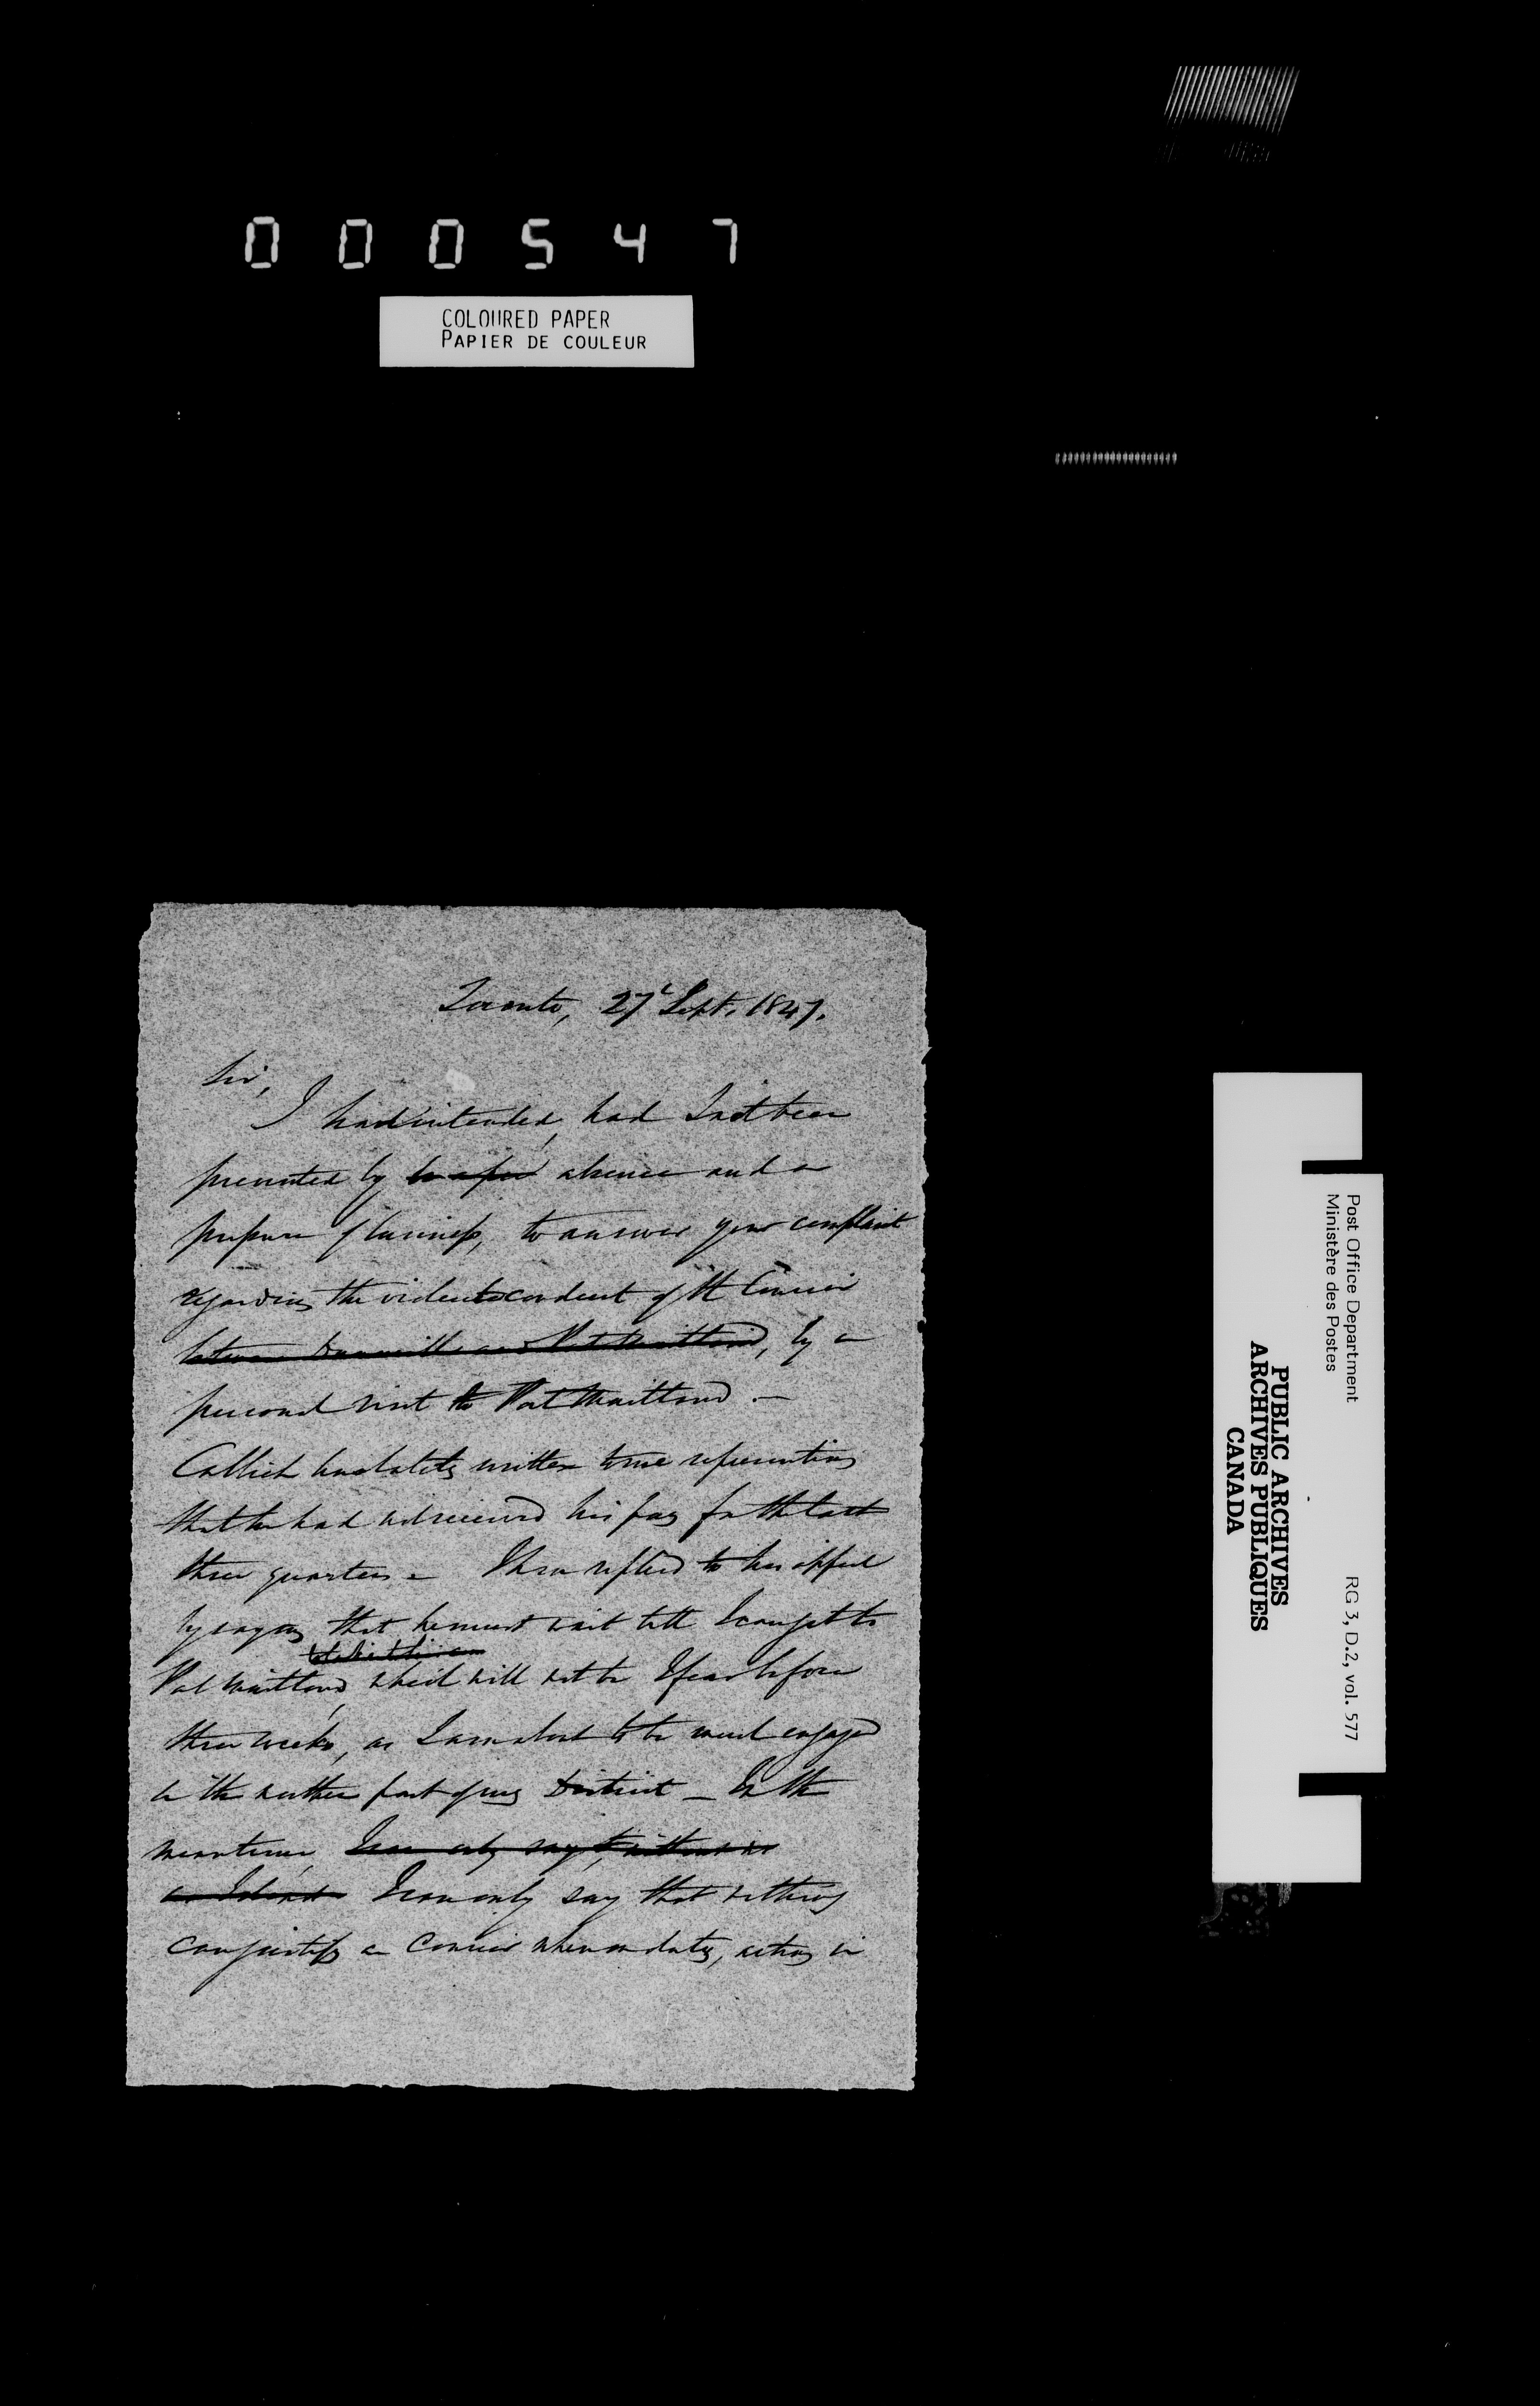 000547
COLOURED PAPER
PAPIER DE COULEUR
Toronto, 27 Sept. 1847.
Sir,
I had intended, had I not been
prevented by absence and a
pressure of business, to answer your complaint
regarding the violent conduct of the Courier
between Dunnville and Port Maitland, by a
personal visit to Port Maitland. —
has lately written to me representing
that he had not received his pay for the last
three quarters — I have replied to his appeal
by saying that he must wait till I can get to
Port Maitland, which will not be I fear before
three weeks, as I am about to be much engaged
in the northern part of my District — In the
meantime, I can only say, without
I can only say that nothing
can justify a Courier when on duty, acting in
Post Office Department
Ministère des Postes
RG 3, D.2, vol. 577
PUBLIC ARCHIVES
ARCHIVES PUBLIQUES
CANADA